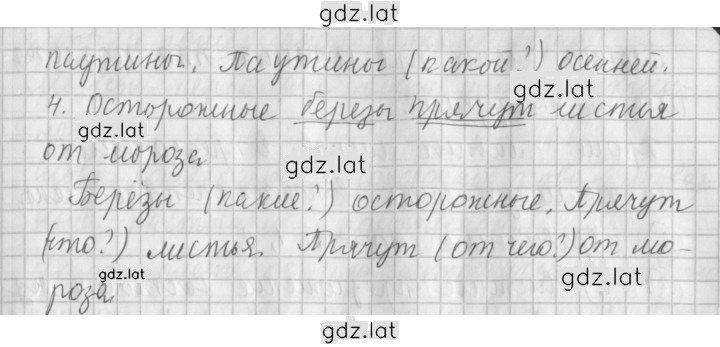 gdz.lat
паутины. Паутины (какой?) осенней.
gdz.lat
4. Осторожные березы прячут листья
gdz.lat
от мороза
gdz.lat
Берёзы (какие?) осторожные. Прячут
(что?) листья. Прячут (от чего?) от мо-
gdz.lat gdz.lat
роза
gdz.lat